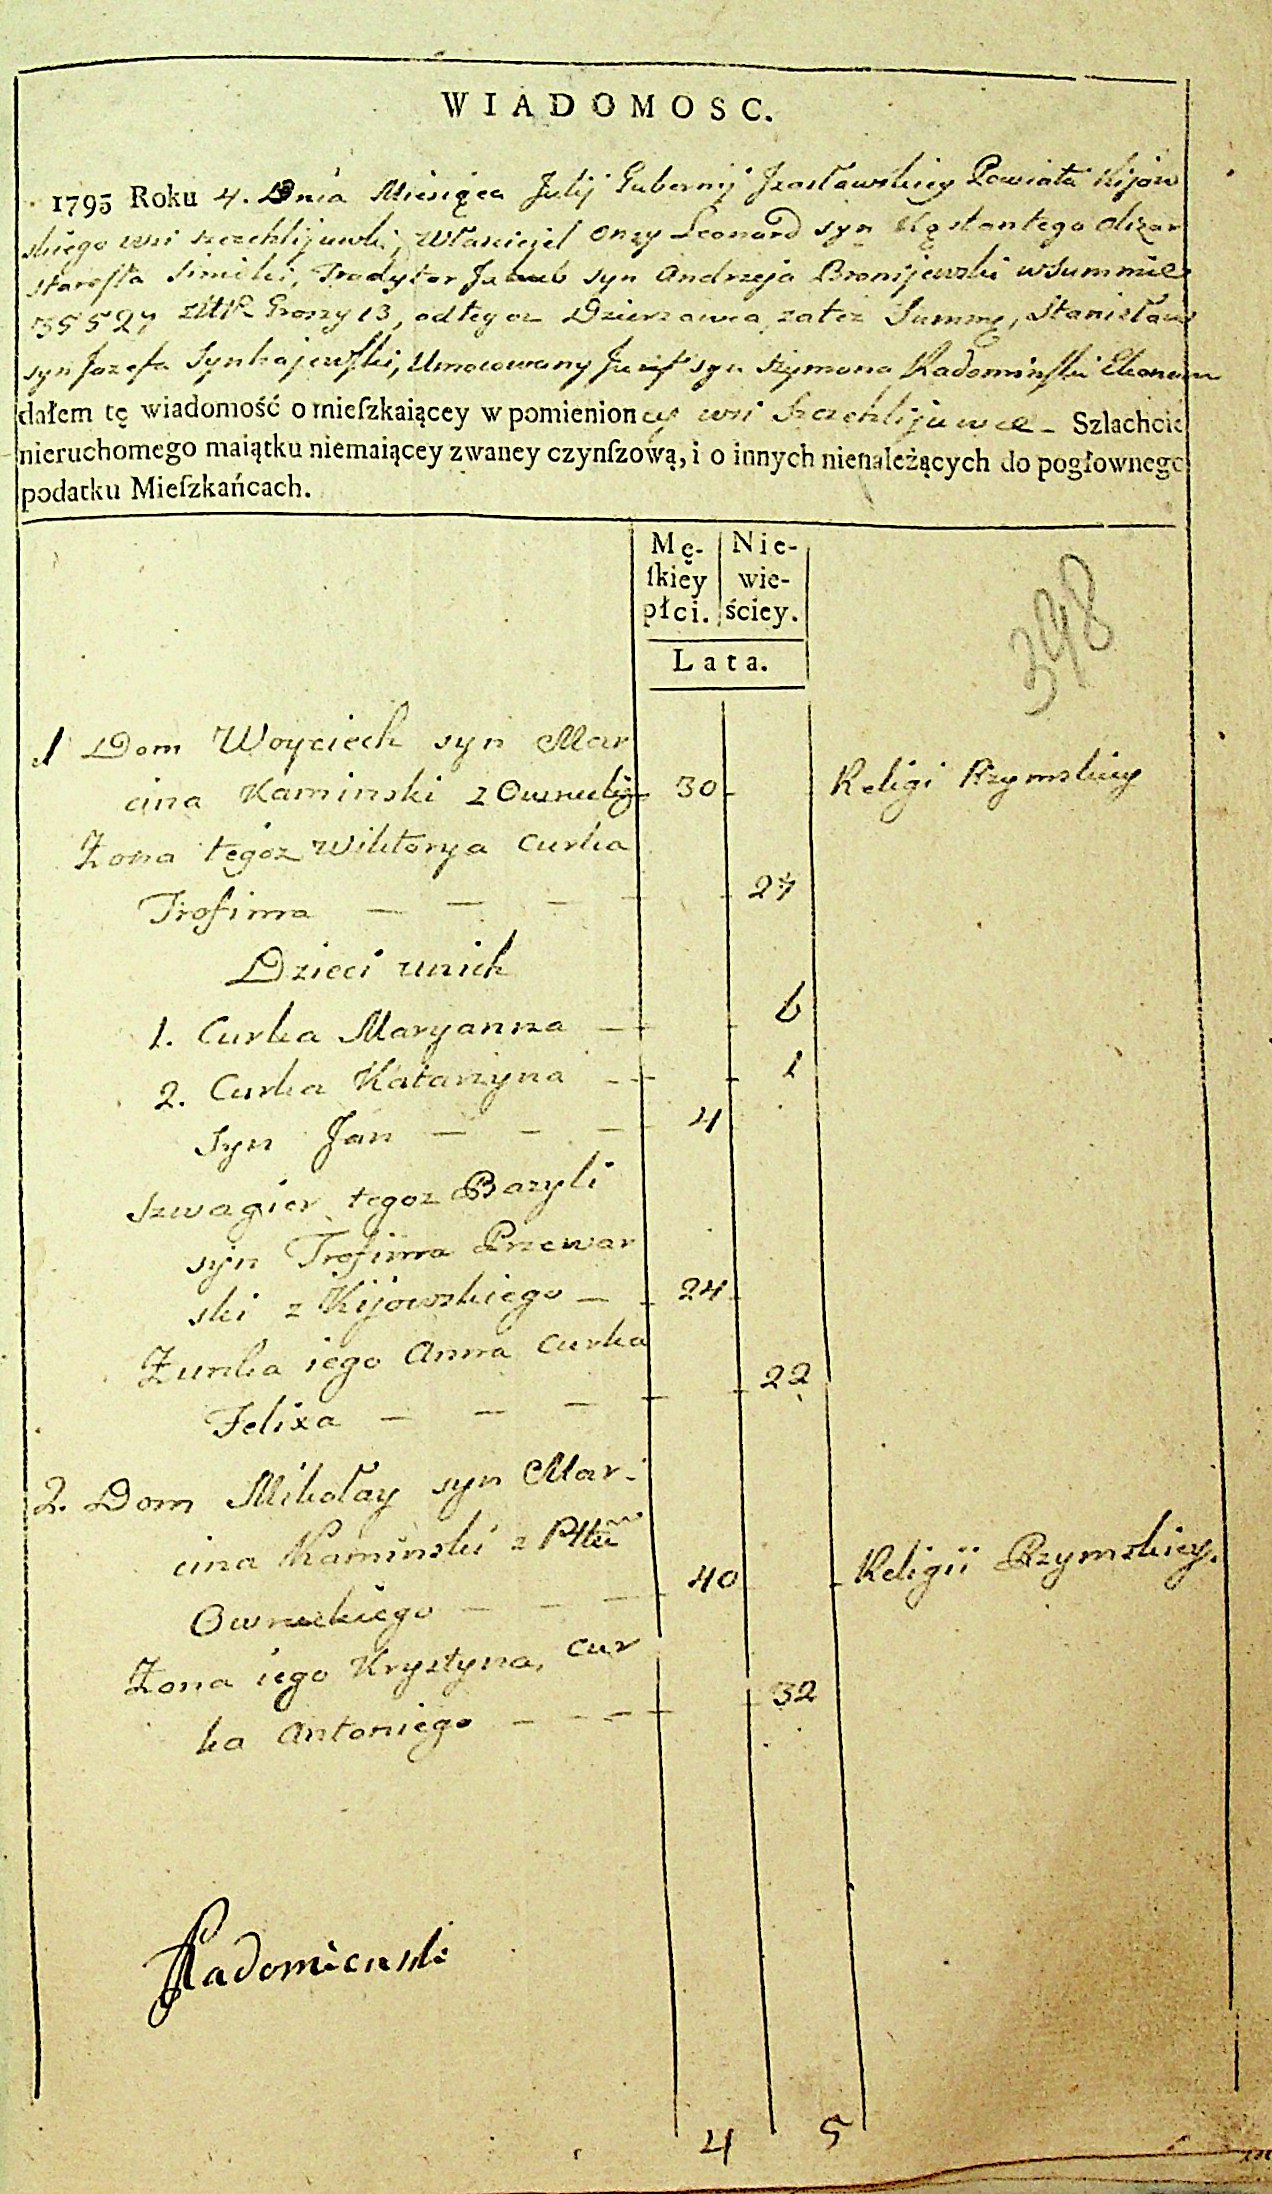 WIADOMOSC.
1795 Roku 4. Dnia Miesięca Julij Gubernij Izasławskiey Powiatu Kijow
skiego wsi szczehlijuwki, Własciciel Onzy Leonard syn Kąstantego Olizar
starosta , Tradytor Jakub syn Andrzeja Bronijewski w Summie
35527 złłP Groszy 13, od tegoz Dzierzawca zatez Summę, Stanisław
syn Jozefa Synhajewski, Umocowany Jozef syn Szymona Radominski Ekonom
dałem tę wiadomość o mieſzkaiącey w pomienioney wsi Szczehlijuwce - Szlachcie
nieruchomego maiątku niemaiącey zwaney czynſzową, i o innych nienależących do pogłownego
podatku Mieſzkańcach.
Mę- Nie-
ſkiey wie-
płci. ściey.
Lata.
398
1 Dom Woyciech syn Mar
cina Kaminski z 30 Religi Rzymskiey
Żona tegoz Wiktorya Curka
Trofima — — — 27
Dzieci unich
1. Curka Maryanna — 6
2. Curka Katarzyna — 1
Syn Jan — — — 4
Szwagier tegoz Bazyli
syn Trofima Przewar
ski z Kijowskiego — 24
Żunka iego Anna Curka
Felixa — — — 22
2. Dom Mikołay syn Mar-
cina Kaminski z Pttu
Owruckiego — — — 40 Religii Rzymskiey.
Żona iego Krystyna, Cur
ka Antoniego — — — 32
Radomienski
4 5